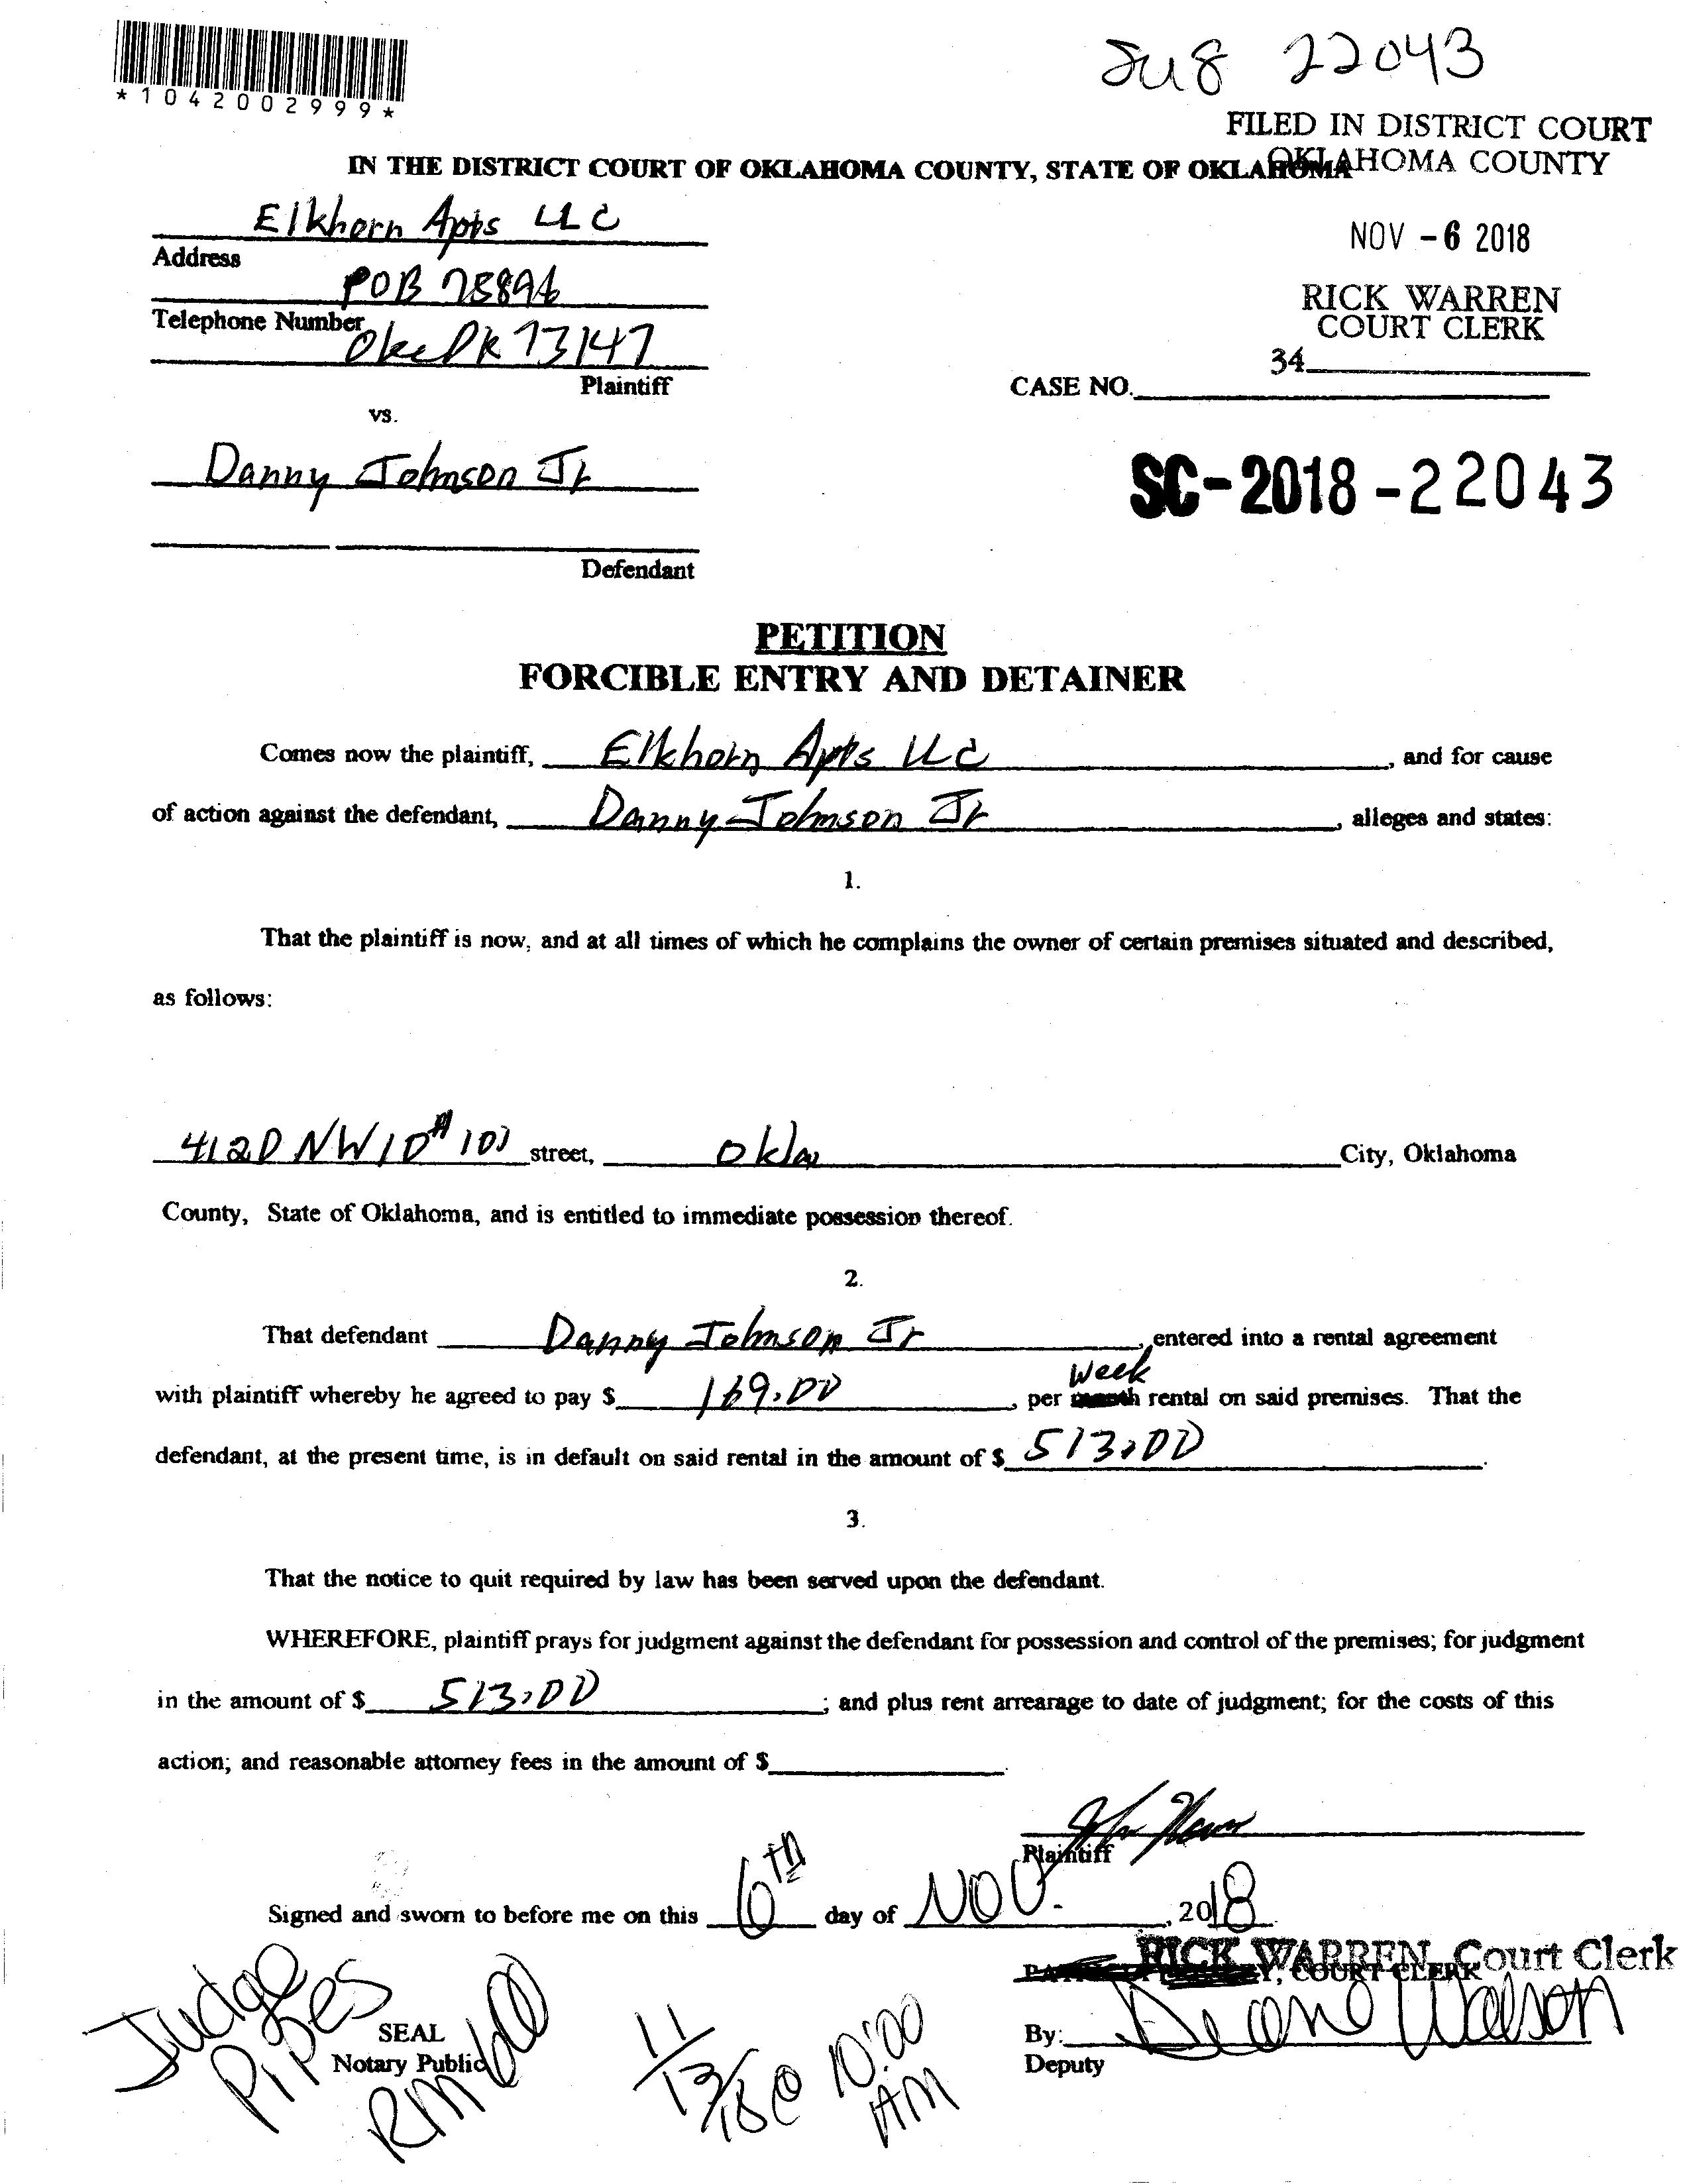 *1042002999*
22043
FILED IN DISTRICT COURT
OKLAHOMA COUNTY
IN THE DISTRICT COURT OF OKLAHOMA COUNTY, STATE OF OKLAHOMA
Elkhorn Apts LLC
NOV -6 2018
Address
POB 75894
RICK WARREN
COURT CLERK
Telephone Number
Okc Ok 73147
34
Plaintiff
CASE NO.
vs.
Danny Johnson Jr
SC-2018-22043
Defendant
PETITION
FORCIBLE ENTRY AND DETAINER
Comes now the plaintiff, Elkhorn Apts LLC, and for cause
of action against the defendant, Danny Johnson Jr, alleges and states:
1.
That the plaintiff is now, and at all times of which he complains the owner of certain premises situated and described,
as follows:
4120 NW 10 # 101 street, Okla City, Oklahoma
County, State of Oklahoma, and is entitled to immediate possession thereof.
2.
That defendant Danny Johnson Jr, entered into a rental agreement
Week
with plaintiff whereby he agreed to pay $ 169.00, per month rental on said premises. That the
defendant, at the present time, is in default on said rental in the amount of $ 513.00.
3.
That the notice to quit required by law has been served upon the defendant.
WHEREFORE, plaintiff prays for judgment against the defendant for possession and control of the premises; for judgment
in the amount of $ 513.00; and plus rent arrearage to date of judgment; for the costs of this
action; and reasonable attorney fees in the amount of $.
Plaintiff
Signed and sworn to before me on this 6th day of NOV. , 2018
RICK WARREN, Court Clerk
, COURT CLERK
Judge
Pipes
SEAL
By: Deane Walson
Notary Public
Deputy
11/13/18 @ 10:00
AM